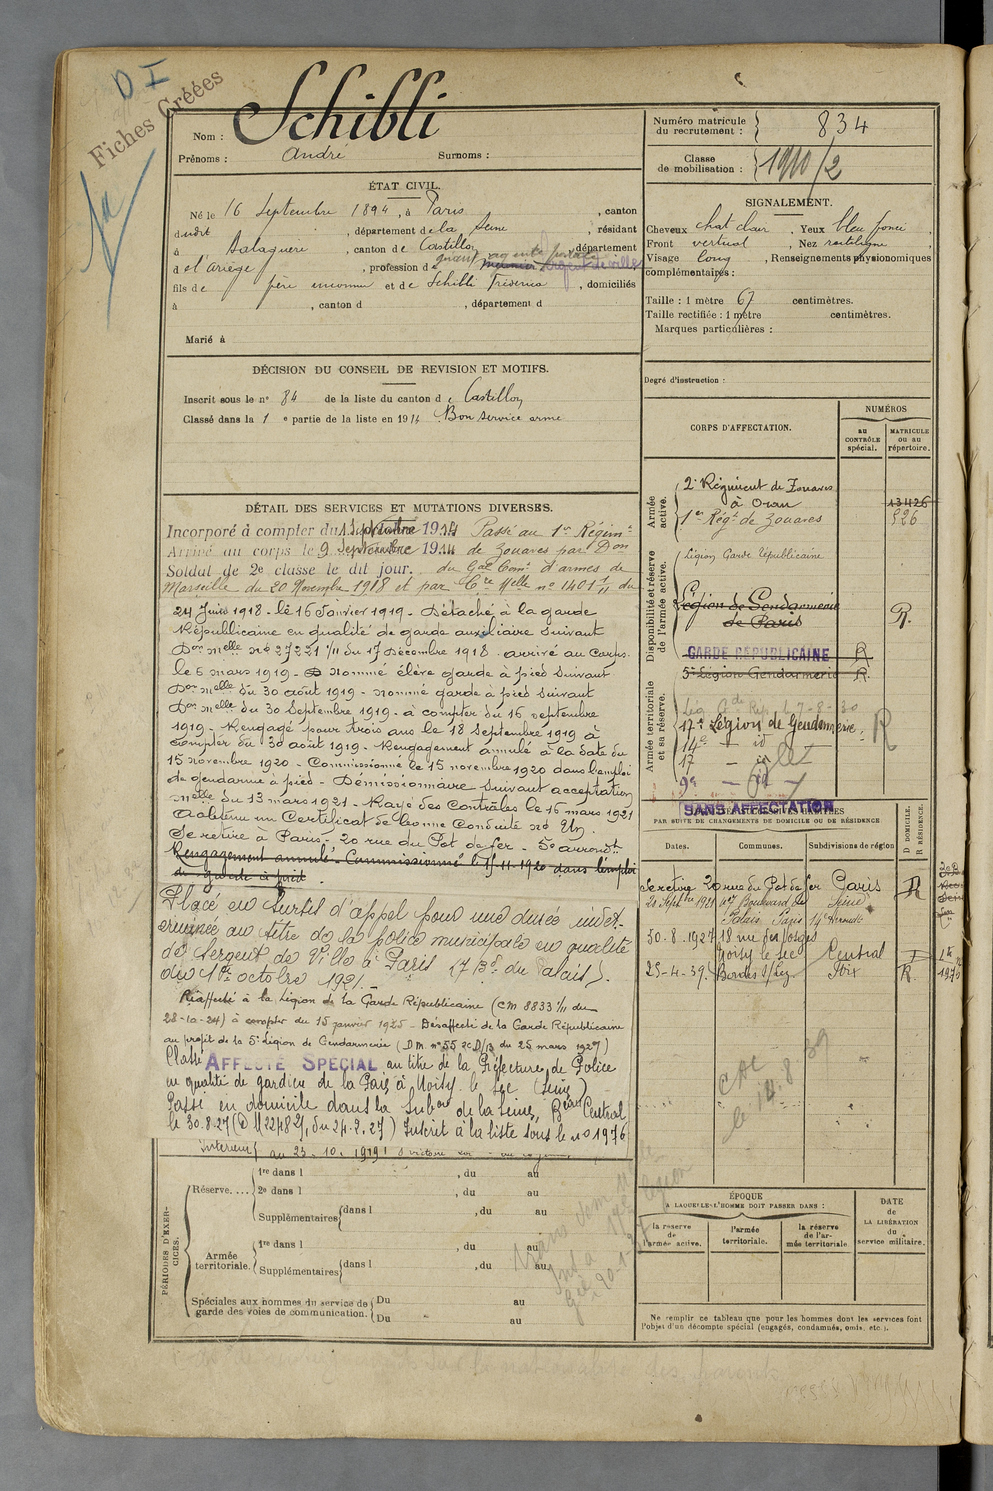 D I
Fiches Créées
Nom : Schibli
Prénoms : André Surnoms :
Numéro matricule du recrutement : 834
Classe de mobilisation : 1910/2
ÉTAT CIVIL.
Né le 16 Septembre 1894, à Paris, canton
dudit, département de la Seine, résidant
à Balaguères, canton de Castillon, département
d et d'ariège, profession de
fils de père inconnu et de Schibli, domiciliés
à , canton d , département d
Marié à
SIGNALEMENT.
Cheveux chat clair, Yeux bleu foncé
Front vertical, Nez rectiligne
Visage long, Renseignements physionomiques
complémentaires :
Taille : 1 mètre 67 centimètres.
Taille rectifiée : 1 mètre centimètres.
Marques particulières :
Degré d'instruction :
DÉCISION DU CONSEIL DE REVISION ET MOTIFS.
Inscrit sous le n° 84 de la liste du canton de Castillon
Classé dans la 1e partie de la liste en 1914 Bon service armé
DÉTAIL DES SERVICES ET MUTATIONS DIVERSES.
Incorporé à compter du 1 Septembre 1914 Passé au 1er Régimt
Arrivé au corps le 9 septembre 1914 de Zouaves par Don
Soldat de 2e classe le dit jour. du Gal Comt d'armes de
Marseille du 20 Novembre 1918 et par Cre Melle no 14011 1/11 du
24 Juin 1918 - le 16 Janvier 1919 - Détaché à la garde
Républicaine en qualité de garde auxiliaire suivant
Don melle no 27221 1/11 du 17 Décembre 1918. arrivé au Corps
le 5 mars 1919 - Nommé élève garde à pied suivant
Don melle du 30 août 1919 - nommé garde à pied suivant
Don melle du 30 Septembre 1919 - à compter du 16 septembre
1919 - Rengagé pour trois ans le 18 Septembre 1919 à
compter du 30 août 1919 - Rengagement annulé à la date du
15 novembre 1920 - Commissionné le 15 novembre 1920 dans l'emploi
de gendarme à pied - Démissionnaire suivant acceptation
melle du 13 mars 1921 - Rayé des Contrôles le 16 mars 1921
a obtenu un Certificat de bonne Conduite no Un.
Se retire à Paris 20 rue du Pot de fer - 5e arrondt.
Rengagement annulé - Commissionné le 15-11-1920 dans l'emploi
de garde à pied.
Placé en sursis d'appel pour une durée indét-
erminée au titre de la police municipale en qualité
de Sergent de Ville à Paris
du 1er octobre 1921.
Réaffecté à la Légion de la Garde Républicaine (CM 8833 1/11 du
28-10-24) à compter du 15 janvier 1925 - Désaffecté de la Garde Républicaine
au profit de la 5e Légion de Gendarmerie (DM n° 55 du 25 mars 1927)
Classé AFFECTÉ SPÉCIAL au titre de la Préfecture de Police
en qualité de gardien de la Paix à Noisy le Sec (Seine)
Passé en domicile dans la Subon de la Seine, Beau Central
le 30.8.27 Inscrit à la liste sous le no 1976
CORPS D'AFFECTATION.
NUMÉROS
AU CONTRÔLE spécial.
MATRICULE ou au répertoire.
Armée active.
2e Régiment de Zouaves
à Oran 13426
1er Régt de Zouaves 526
Disponibilité et réserve de l'armée active.
Légion Garde Républicaine
Légion de Gendarmerie
de Paris R.
GARDE RÉPUBLICAINE R
5e Légion Gendarmerie R.
Armée territoriale et sa réserve.
17e Légion de Gendarmerie R
14e - id
17 - id
9e - id
SANS AFFECTATION
PAR SUITE DE CHANGEMENTS DE DOMICILE OU DE RÉSIDENCE
Dates. Communes. Subdivisions de région
D DOMICILE. R RÉSIDENCE.
Se retire 20 rue du Pot de fer Paris R
Boulevard du Seine
Palais Paris
30-8-1927 18 rue des Vosges
Noisy le Sec Central
25-4-39. Bordes s/Lez Foix R.
CAC
le 14.8.39
PÉRIODES D'EXERCICES.
Réserve.... 1re dans l , du au
2e dans l , du au
Supplémentaires dans l , du au
Armée territoriale. 1re dans l , du au
Supplémentaires dans l , du au
Spéciales aux hommes du service de garde des voies de communication. Du au
Du au
ÉPOQUE
A LAQUELLE L'HOMME DOIT PASSER DANS :
la réserve de l'armée active.
l'armée territoriale.
la réserve de l'armée territoriale.
DATE de LA LIBÉRATION du service militaire.
Ne remplir ce tableau que pour les hommes dont les services font
l'objet d'un décompte spécial (engagés, condamnés, omis, etc.).